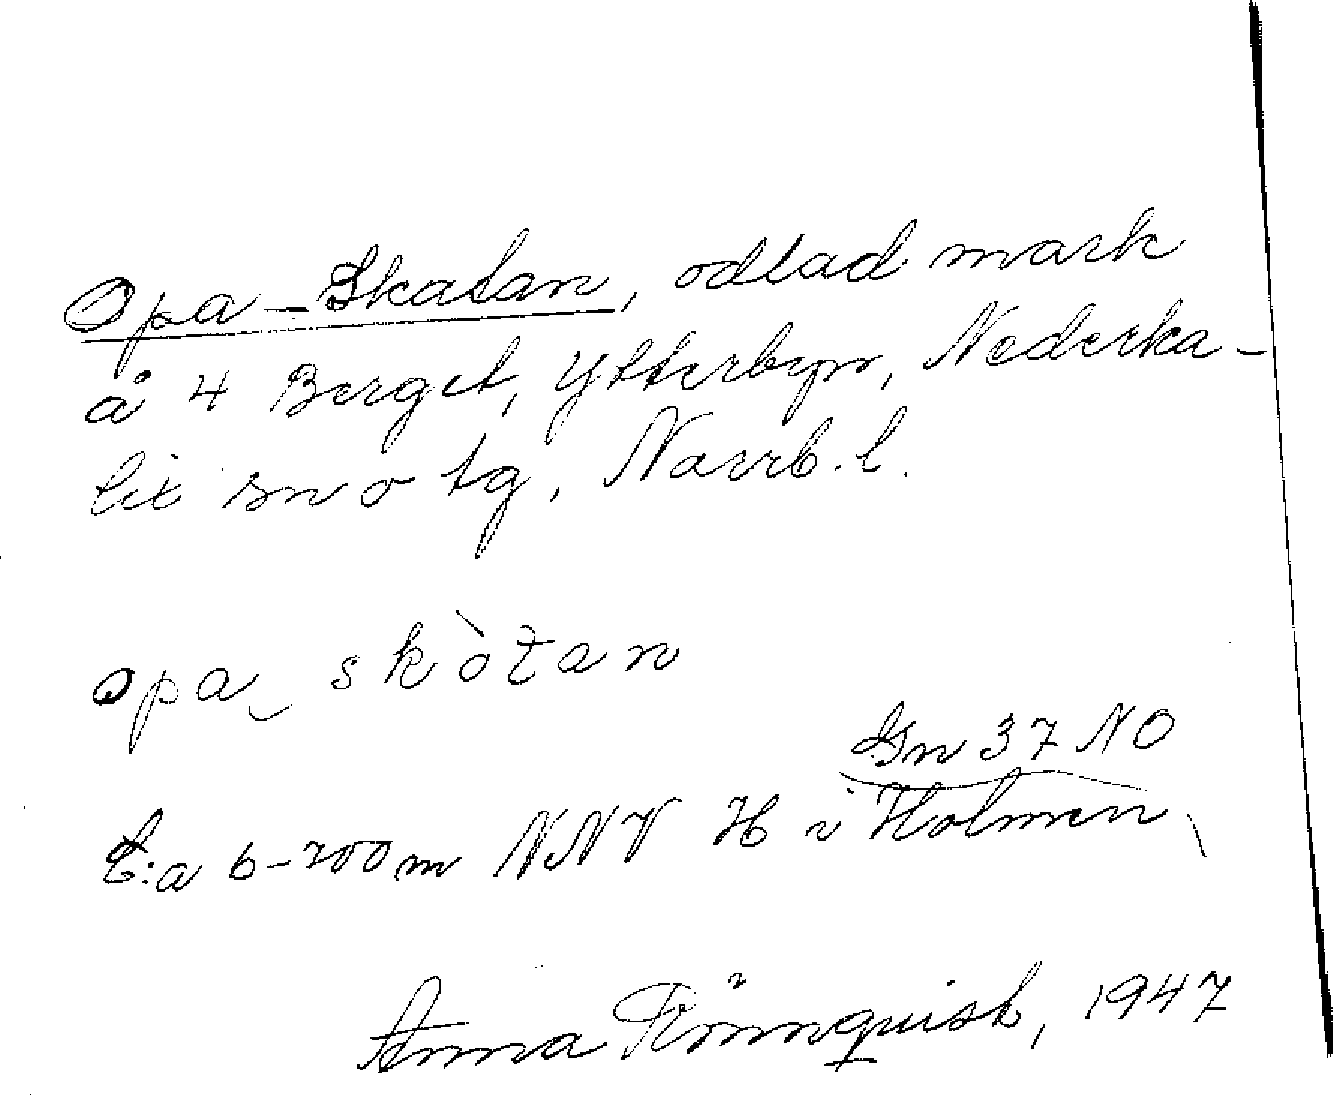 Opa-Skatan, odlad mark
å 4 Berget, Ytterbyn, Nederka-
lix sn o tg, Norrb. l.
opa skòtan
Gn 37 NO
C:a 6-700 m NNV H i Holmen
Anna Rönnquist, 1947